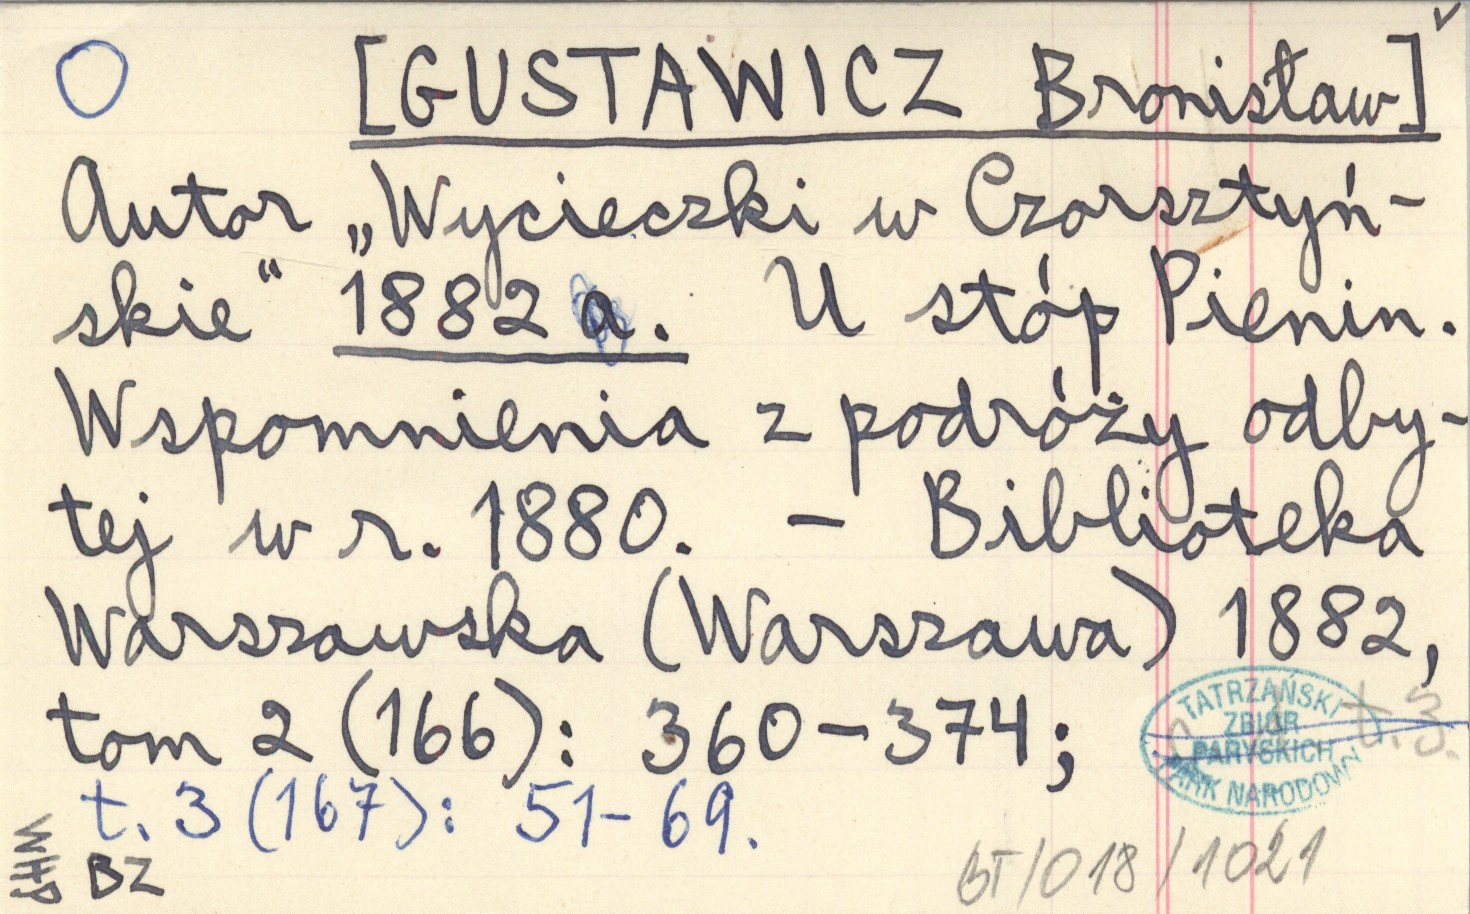 [GUSTAWICZ Bronisław]
Autor „Wycieczki w Czorsztyń-
skie“ 1882 a. U stóp Pienin.
Wspomnienia z podróży odby-
tej w r. 1880. – Biblioteka
Warszawska (Warszawa) 1882,
tom 2 (166): 360–374;
t. 3.
TATRZAŃSKI
ZBIÓR
PARYSKICH
PARK NARODOWY
t. 3 (167): 51–69.
WHP
BZ
BT/018/1021